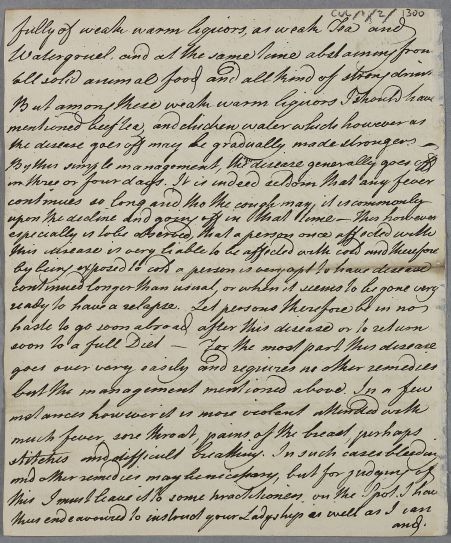 Cul/1/2/1300
fully of weak warm liquors, as weak Tea and
Watergruel. and at the same time abstaining from
all solid animal food and all kind of strong drink
But among these weak warm liquors I should have
mentioned beef tea and chicken water which however as
the disease goes off may be gradually made stronger —
By this simple management, the disease generally goes off
in three or four days. It is indeed seldom that any fever
continues so long and tho the cough may, it is commonly
upon the decline and going off in that time — This however
especially is to be observed, that a person once affected with
this disease is very liable to be affected with cold and therefore
by being exposed to cold a person is very apt to have disease
continued longer than usual, or when it seems to be gone very
ready to have a relapse. Let persons therefore be in no
haste to go soon abroad after this disease or to return
soon to a full Diet — For the most part this disease
goes over very easily and requires no other remedies
but the management mentioned above. In a few
instances however it is more violent attended with
much fever sore throat, pains of the breast, perhaps
stitches and difficult breathing. In such cases bleeding
and other remedies may be necessary, but for judging of
this I must leave it to some practitioners on the Spot. I have
thus endeavoured to instruct your Ladyship as well as I can
and.